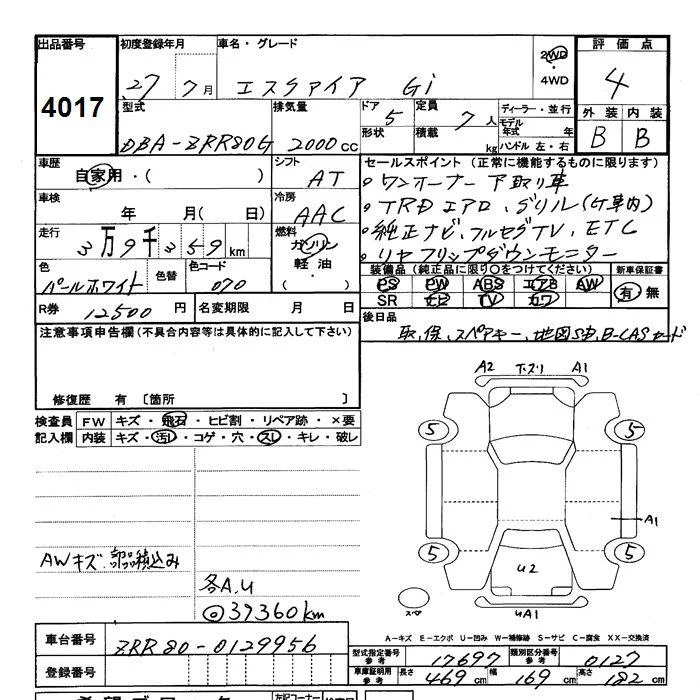 出品番号 初度登録年月 車名・グレード 2WD 評価点
4017 27 7月 エスクァイア Gi 4WD 4
型式 排気量 ドア 5 定員 7人 ディーラー・並行 外装 内装
DBA-ZRR80G 2000cc 形状 積載 kg モデル年式 年 ハンドル 左・右 B B
車歴 自家用・( ) シフト AT セールスポイント(正常に機能するものに限ります)
。ワンオーナー下取り車
車検 年 月(日) 冷房 AAC 。TRDエアロ、グリル(
走行 3万9千359km 燃料 ガソリン・軽油・ 。純正ナビ、フルセグTV、ETC
。リヤフリップダウンモニター
色 パールホワイト 色替 色コード 070 装備品(純正品に限り○をつけてください) 新車保証書
PS PW ABS エアB AW 有・無
SR ナビ TV カワ
R券 12500円 名変期限 月 日 後日品
取、保、スペアキー、地図SD、B-CASカード
注意事項申告欄(不具合内容等は具体的に記入して下さい)
修復歴 有〔箇所 〕
検査員 FW キズ・飛石・ヒビ割・リペア跡・×要
記入欄 内装 キズ・汚れ・コゲ・穴・スレ・キレ・破レ
A2 下スリ A1
5 5
A1
5 5
U2
スペア UA1
AWキズ 部品積込み
各A,U
◎39360km
A-キズ E-エクボ U-凹み W-補修跡 S-サビ C-腐食 XX-交換済
車台番号 ZRR80-0129956
型式指定番号 参考 17697 類別区分番号 参考 0127
登録番号 車庫証明用 参考 長さ 469cm 幅 169cm 高さ 182cm